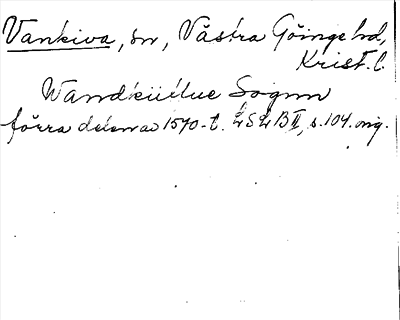 Vankiva, sn, Västra Göinge hd,
Krist. l.
Wandküllue Sognn
förra delen av 1570-t. LSLB II, s. 104. orig.